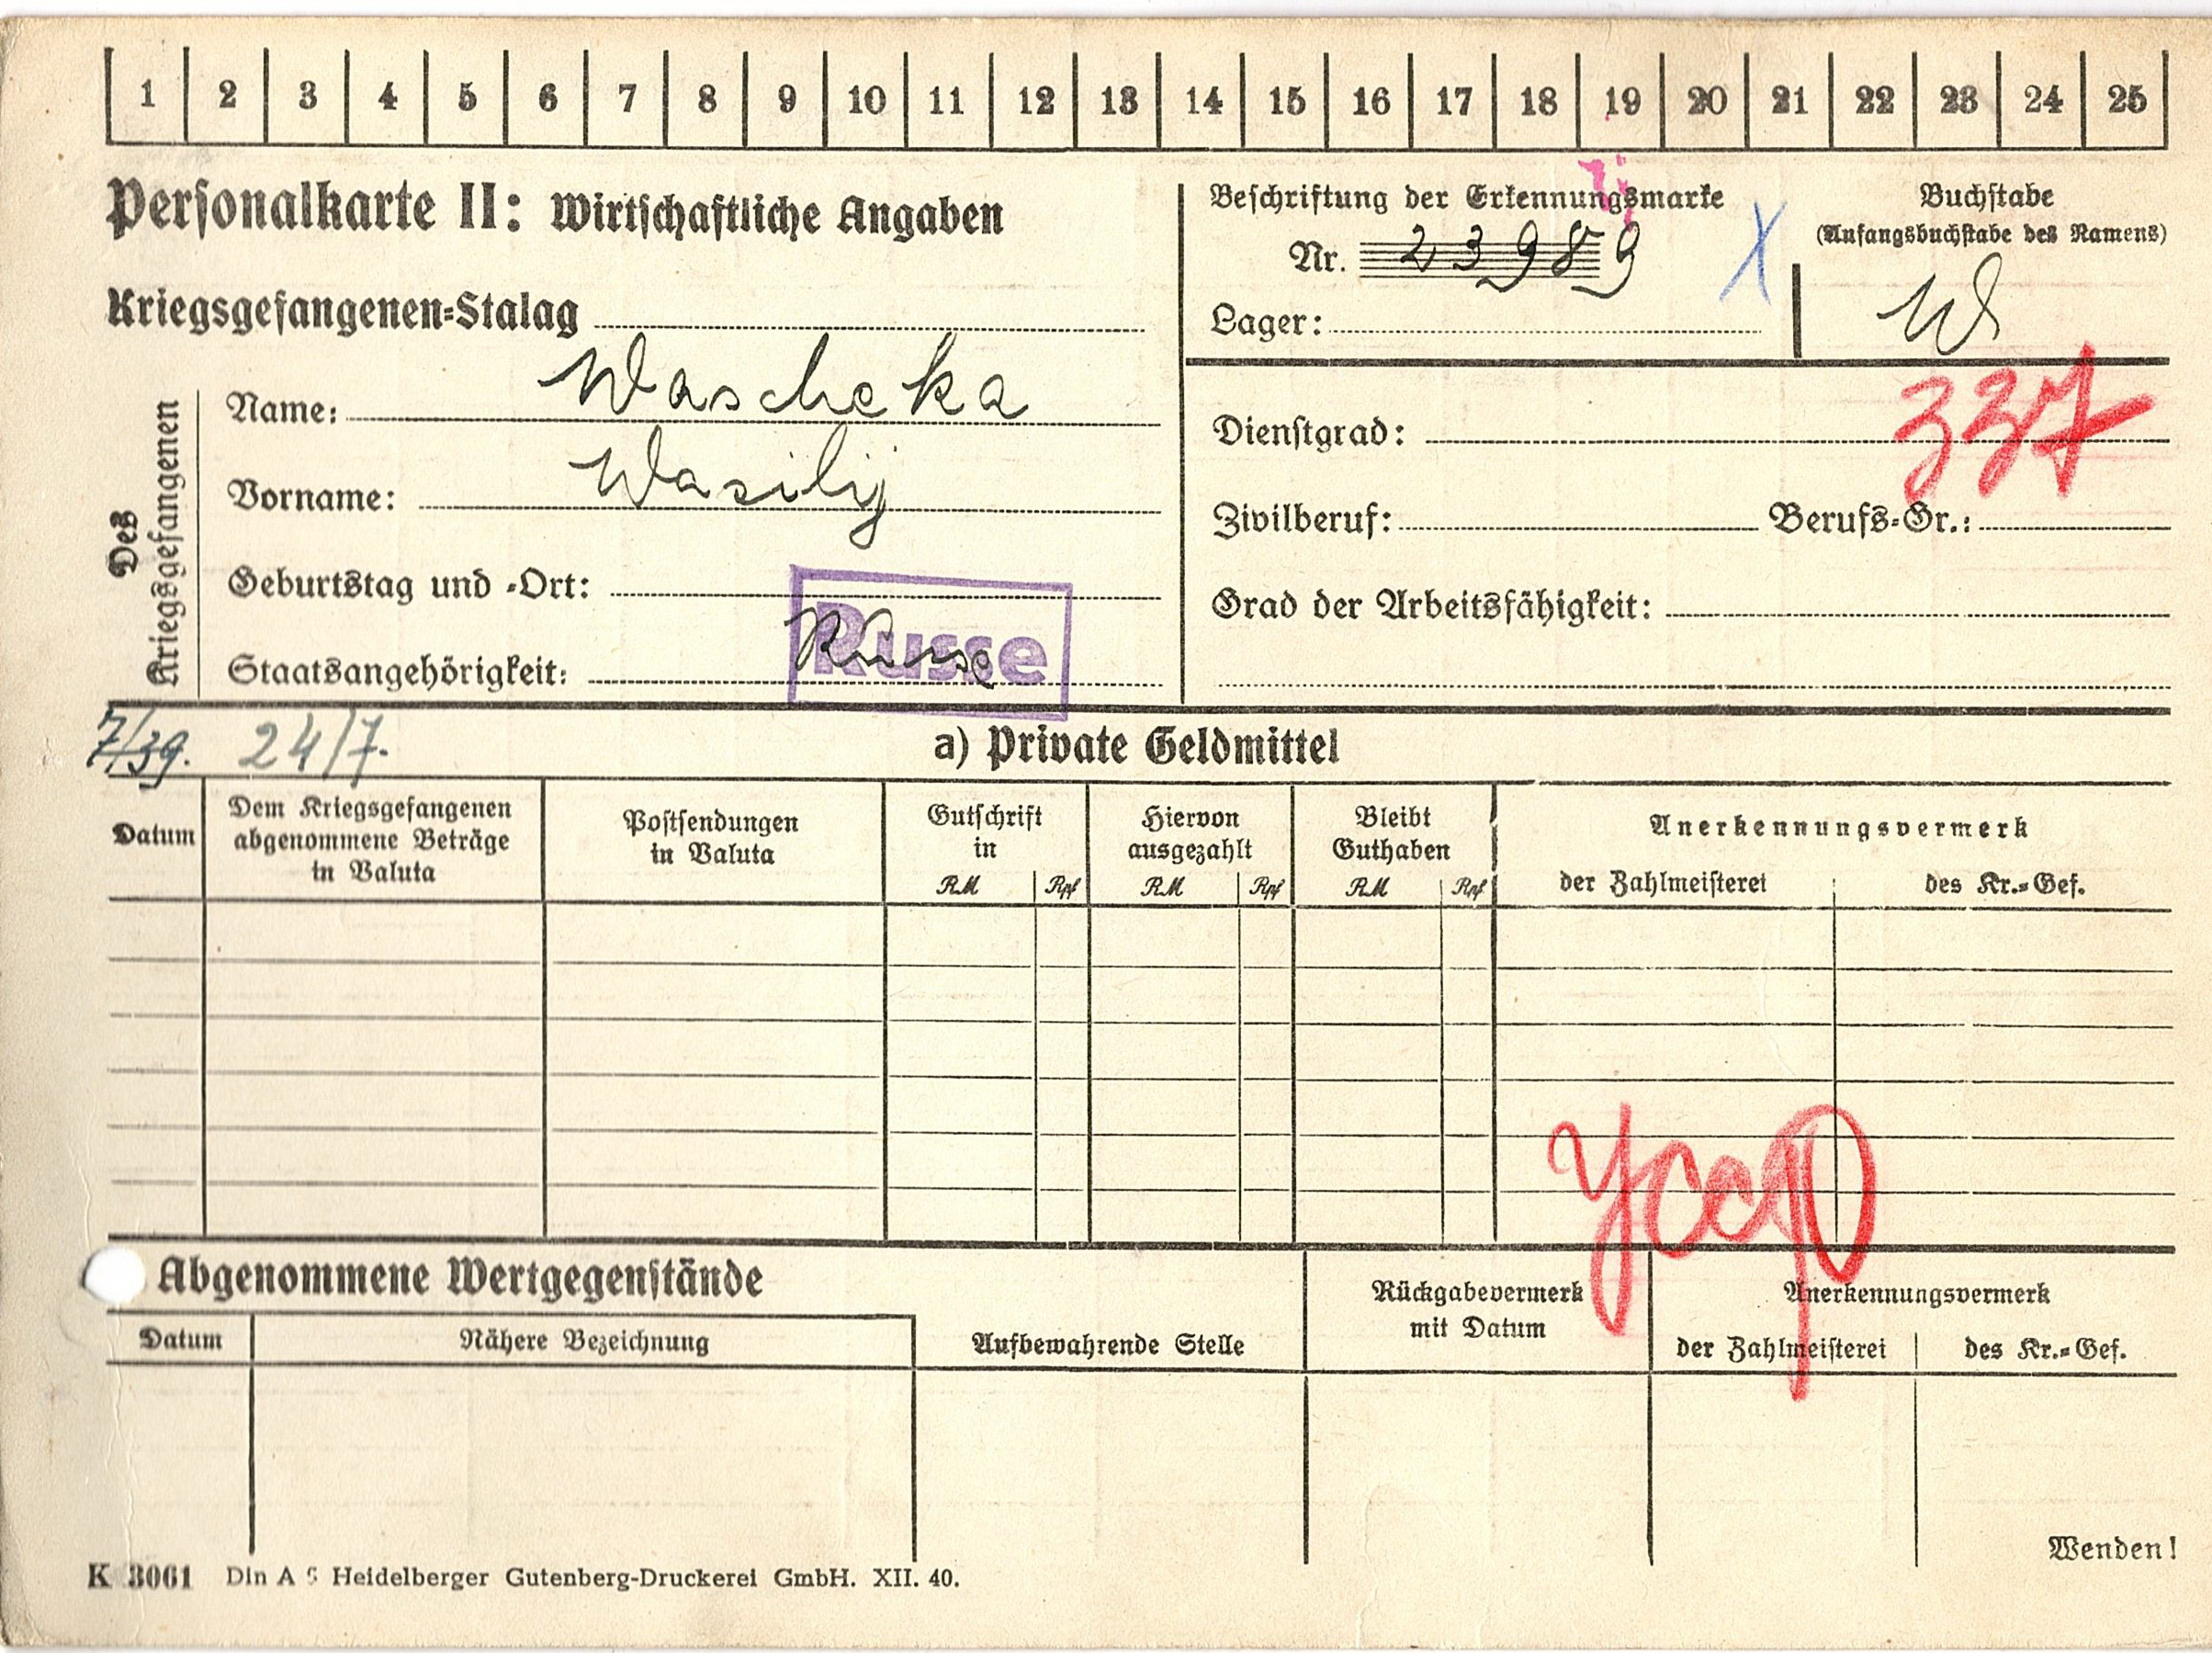 1 2 3 4 5 6 7 8 9 10 11 12 13 14 15 16 17 18 19 20 21 22 23 24 25
Personalkarte II: Wirtschaftliche Angaben
Kriegsgefangenen-Stalag
Beschriftung der Erkennungsmarke
Nr. 23989
Lager:
Buchstabe
(Anfangsbuchstabe des Namens)
W
Des
Kriegsgefangenen
Name: Wascheka
Vorname: Wasilij
Geburtstag und -Ort:
Staatsangehörigkeit: Russe
Russe
337
Dienstgrad:
Zivilberuf: Berufs-Gr.:
Grad der Arbeitsfähigkeit:
7/39. 24/7.
a) Private Geldmittel
Datum
Dem Kriegsgefangenen
abgenommene Beträge
in Valuta
Postsendungen
in Valuta
Gutschrift
in
RM Rpf
Hiervon
ausgezahlt
RM Rpf
Bleibt
Guthaben
RM Rpf
Anerkennungsvermerk
der Zahlmeisterei des Kr.-Gef.
Abgenommene Wertgegenstände
Datum Nähere Bezeichnung
Aufbewahrende Stelle
Rückgabevermerk
mit Datum
Anerkennungsvermerk
der Zahlmeisterei des Kr.-Gef.
Wenden!
K 3061 Din A 5 Heidelberger Gutenberg-Druckerei GmbH. XII. 40.